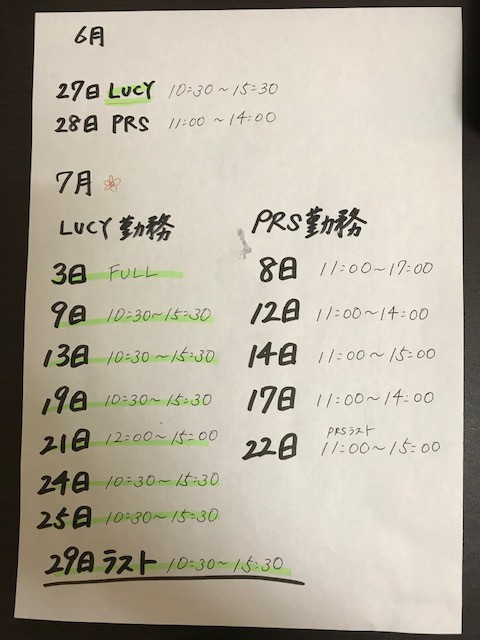 6月
27日 LUCY 10:30～15:30
28日 PRS 11:00～14:00
7月
LUCY 勤務
3日 FULL
9日 10:30～15:30
13日 10:30～15:30
19日 10:30～15:30
21日 12:00～15:00
24日 10:30～15:30
25日 10:30～15:30
29日 ラスト 10:30～15:30
PRS勤務
8日 11:00～17:00
12日 11:00～14:00
14日 11:00～15:00
17日 11:00～14:00
PRSラスト
22日 11:00～15:00